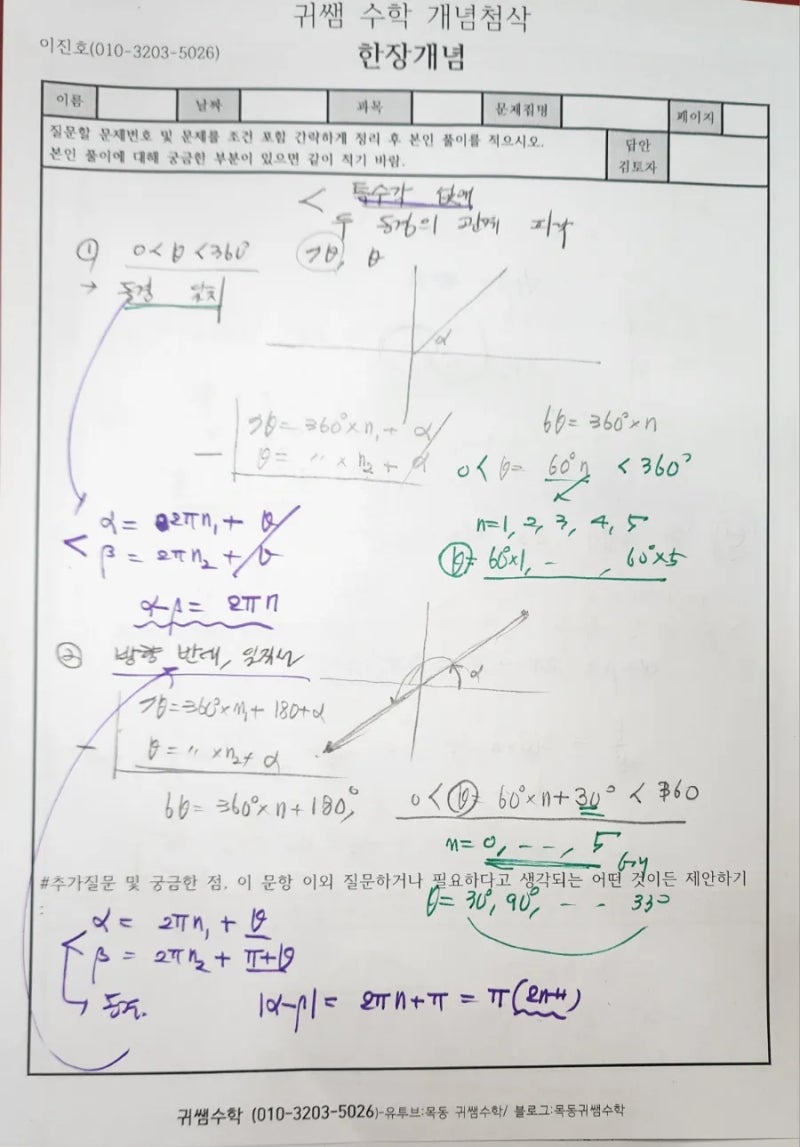 귀쌤 수학 개념첨삭
이진호(010-3203-5026)
한장개념
이름 날짜 과목 문제집명 페이지
질문할 문제번호 및 문제를 조건 포함 간략하게 정리 후 본인 풀이를 적으시오.
본인 풀이에 대해 궁금한 부분이 있으면 같이 적기 바람.
답안
검토자
< 특수각 없에
두 동경의 관계 파악
① 0<θ<360° 7θ, θ
→ 동경 일치
α
7θ = 360°×n₁ + α
— θ = 〃 × n₂ + α
6θ = 360°×n
0 < θ = 60°n < 360°
n=1, 2, 3, 4, 5
θ= 60°×1, - , 60°×5
< α = 2πn₁ + θ
β = 2πn₂ + θ
α-β = 2πn
② 방향 반대, 일직선
α
7θ=360°×n₁+180+α
— θ = 〃 ×n₂+ α
6θ = 360°×n+180°,
0 < θ= 60°×n+30° < 360
n= 0, - - , 5
#추가질문 및 궁금한 점, 이 문항 이외 질문하거나 필요하다고 생각되는 어떤 것이든 제안하기
:
θ= 30°, 90°, - - 330
< α = 2πn₁ + θ
β = 2πn₂ + π+θ
→
|α-β| = 2πn+π = π(2n+1)
귀쌤수학 (010-3203-5026)-유투브:목동 귀쌤수학/ 블로그:목동귀쌤수학